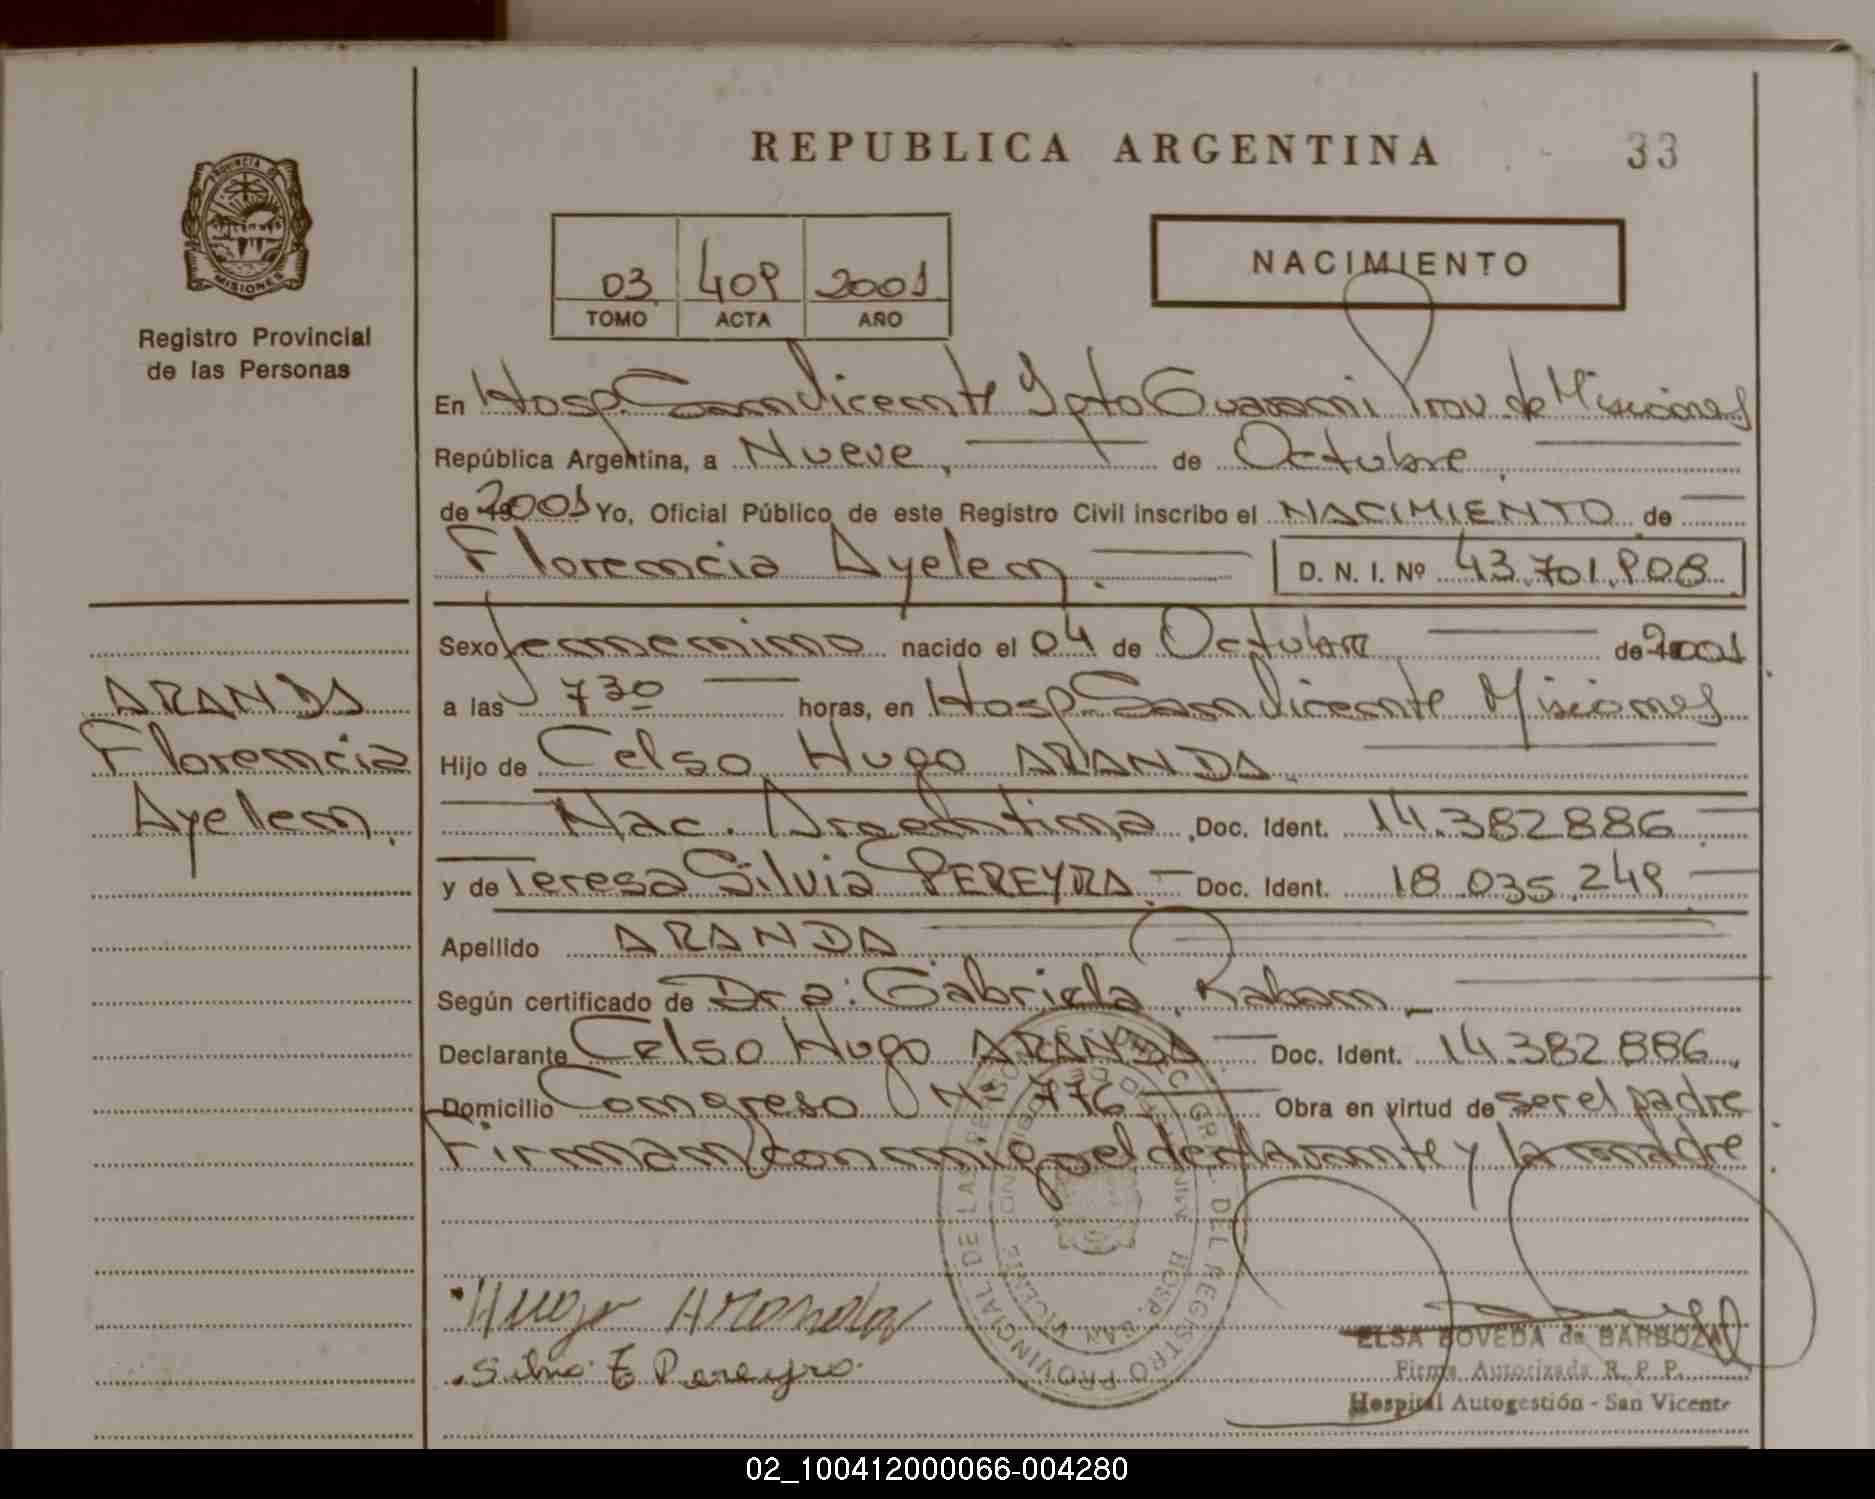 REPUBLICA ARGENTINA 33
PROVINCIA DE
MISIONES
Registro Provincial
de las Personas
03 409 2001
TOMO ACTA AÑO
NACIMIENTO
En Hosp. San Vicente Dpto Guarani Prov. de Misiones
República Argentina, a Nueve, de Octubre
de 2001 Yo, Oficial Público de este Registro Civil inscribo el NACIMIENTO de
Florencia Ayelen. D. N. I. Nº 43.701.908
Sexo femenino nacido el 04 de Octubre de 2001
a las 7 30 horas, en Hosp. San Vicente Misiones
Hijo de Celso Hugo ARANDA
Nac. Argentina Doc. Ident. 14.382886
y de Teresa Silvia PEREYRA Doc. Ident. 18.035.249
Apellido ARANDA
Según certificado de Dra: Gabriela
Declarante Celso Hugo ARANDA Doc. Ident. 14.382886
Domicilio Congreso Nº 776 Obra en virtud de ser el padre
Firman conmigo el declarante y la madre
ARANDA
Florencia
Ayelen.
DIREC. GRAL. DEL REGISTRO PROVINCIAL DE LAS PERSONAS
HOSP. SAN VICENTE
Hugo Aranda
Silvia T Pereyra
ELSA BOVEDA de BARBOZA
Firma Autorizada R. P. P.
Hospital Autogestión - San Vicente
02_100412000066-004280